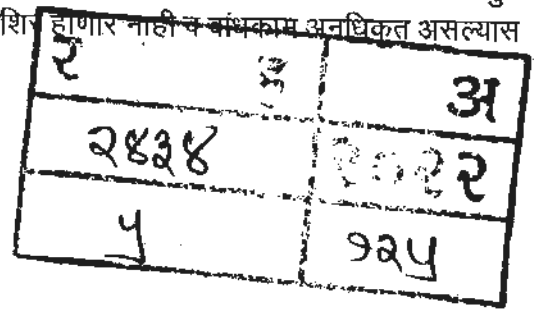 शिर होणार नाही व बांधकाम अनधिकृत असल्यास
र अ
२४३४ २०१२
५ १२५